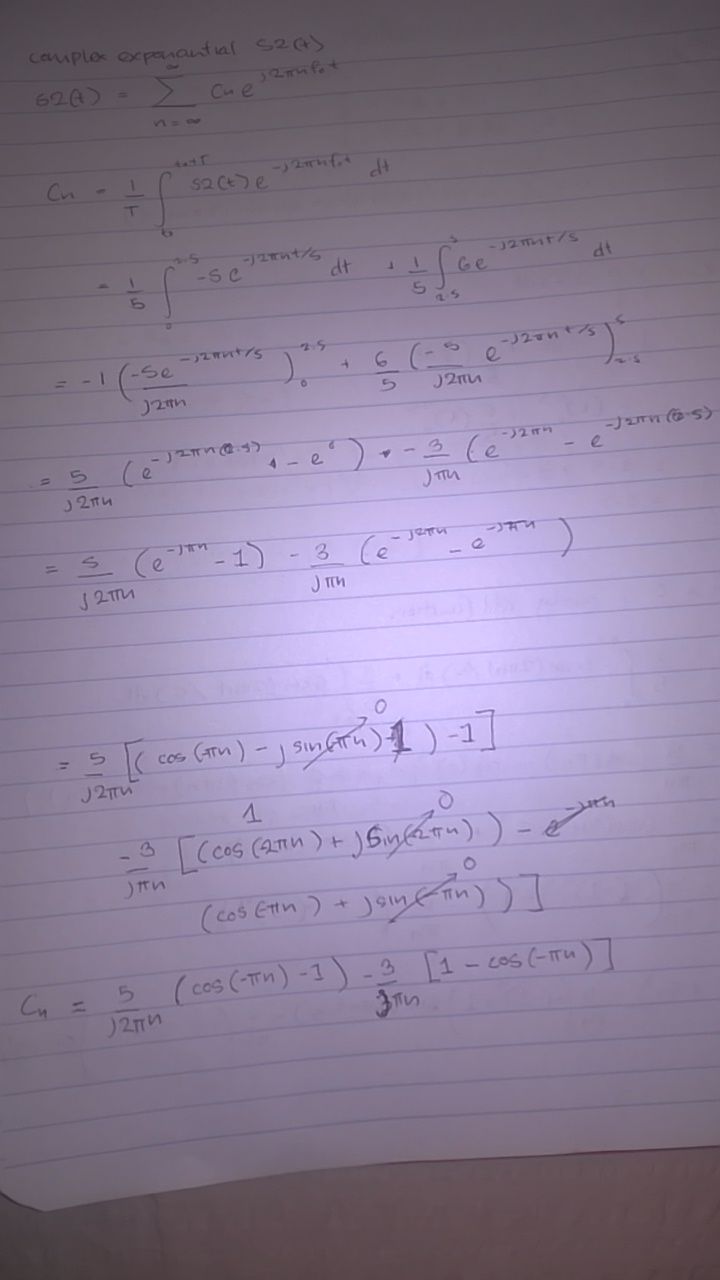 complex exponential s2(t)
s2(t) = ∑_{n=∞}^{∞} Cn e^{j2πnf₀t}
Cn = 1/T ∫_{t₀}^{t₀+T} s2(t) e^{-j2πnf₀t} dt
= 1/5 ∫_0^{2.5} -5e^{-j2πnt/5} dt + 1/5 ∫_{2.5}^{5} 6e^{-j2πnt/5} dt
= -1 (-5e^{-j2πnt/5} / j2πn)_0^{2.5} + 6/5 (-5/j2πn e^{-j2πnt/5})_{2.5}^{5}
= 5/j2πn (e^{-j2πn(0.5)} - e^0) + -3/jπn (e^{-j2πn} - e^{-j2πn(0.5)}
= 5/j2πn (e^{-jπn} - 1) - 3/jπn (e^{-j2πn} - e^{-jπn})
0
= 5/j2πn [(cos(-πn) - j sin(πn)) - 1]
1 0
-3/jπn [(cos(2πn) + j sin(2πn)) - e^{-jπn}
0
(cos(-πn) + j sin(-πn))]
Cn = 5/j2πn (cos(-πn) - 1) - 3/jπn [1 - cos(-πn)]